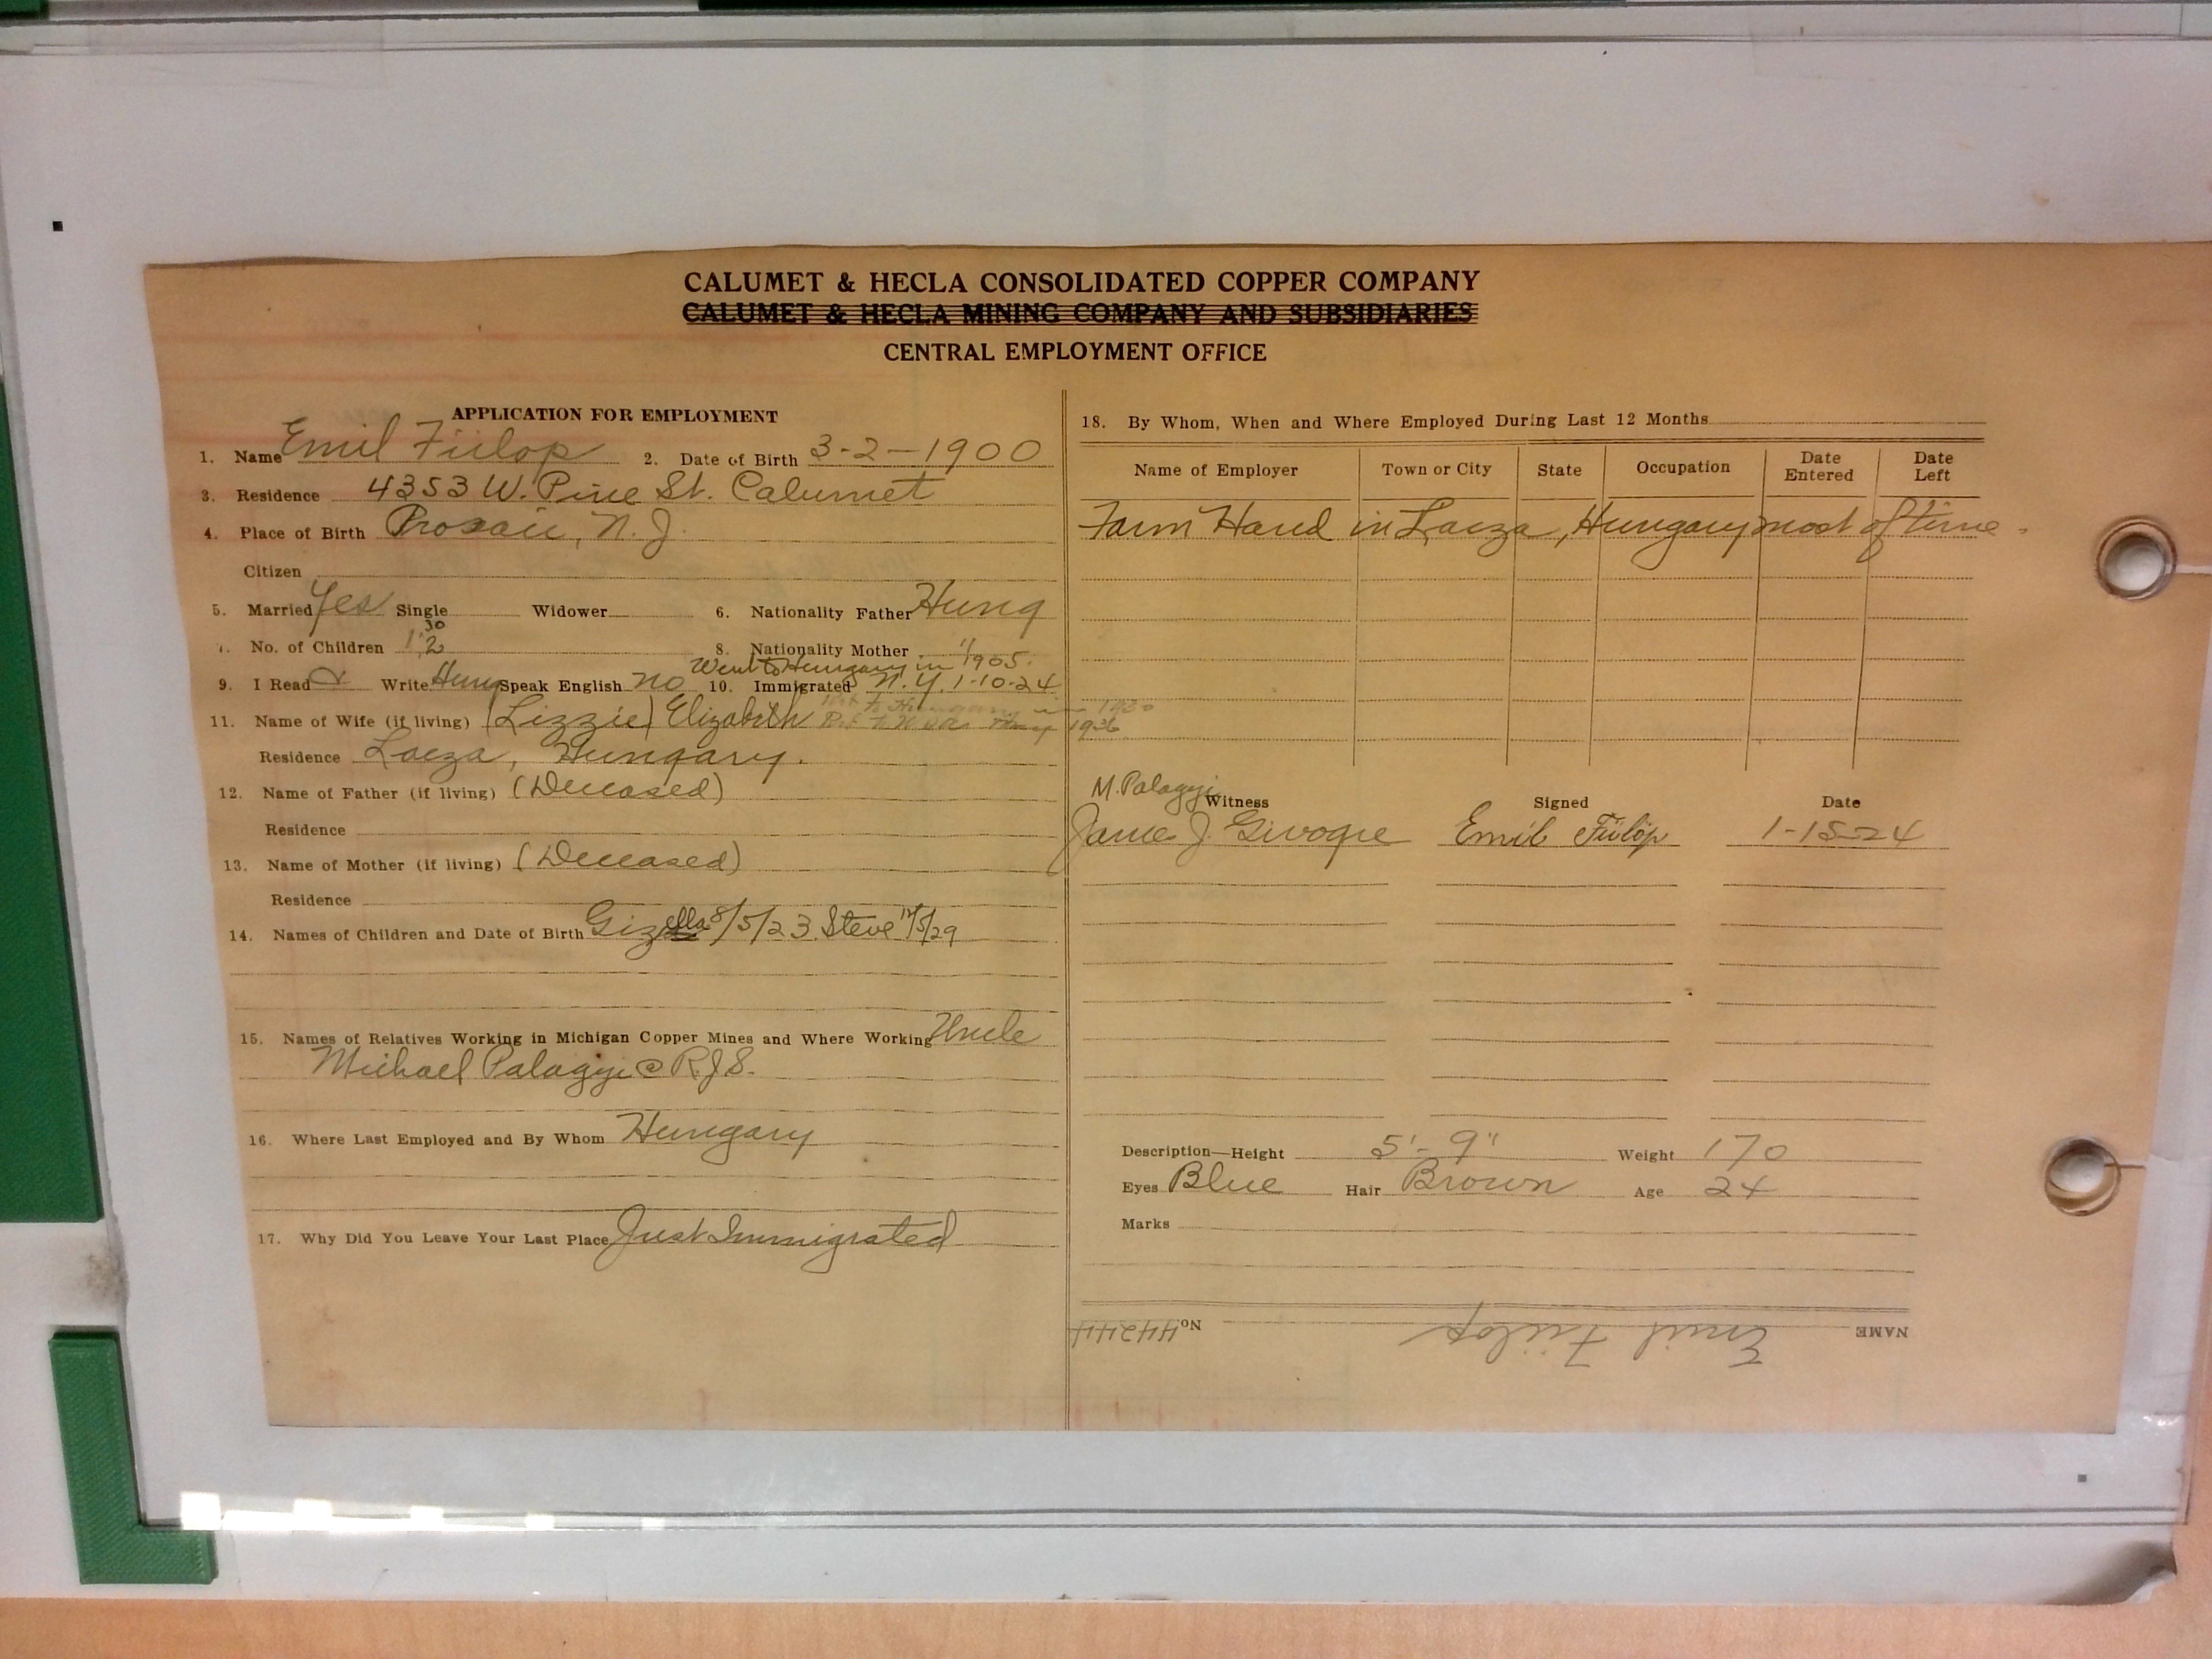 CALUMET & HECLA CONSOLIDATED COPPER COMPANY
CALUMET & HECLA MINING COMPANY AND SUBSIDIARIES
CENTRAL EMPLOYMENT OFFICE
APPLICATION FOR EMPLOYMENT
1. Name Emil Fülop 2. Date of Birth 3-2-1900
3. Residence 4353 W. Pine St. Calumet
4. Place of Birth Prosaic, N. J.
Citizen
5. Married Yes Single Widower 6. Nationality Father Hung
30
7. No. of Children 1 2 8. Nationality Mother "
Went to Hungary in 1905.
9. I Read & Write Hung Speak English no 10. Immigrated N.Y. 1-10-24
11. Name of Wife (if living) (Lizzie) Elizabeth
Residence Lacza, Hungary.
12. Name of Father (if living) (Deceased)
Residence
13. Name of Mother (if living) (Deceased)
Residence
14. Names of Children and Date of Birth Gizella 8/5/23 Steve 12/5/29
15. Names of Relatives Working in Michigan Copper Mines and Where Working Uncle
Michael Palagyi @ R.J.S.
16. Where Last Employed and By Whom Hungary
17. Why Did You Leave Your Last Place Just Immigrated
18. By Whom, When and Where Employed During Last 12 Months
Name of Employer Town or City State Occupation Date Entered Date Left
Farm Hand in Lacza, Hungary most of time.
M. Palagyi
Witness Signed Date
James J. Emil Fülöp 1-15-24
Description—Height 5'-9" Weight 170
Eyes Blue Hair Brown Age 24
Marks
NAME Emil Fülop No. 44244